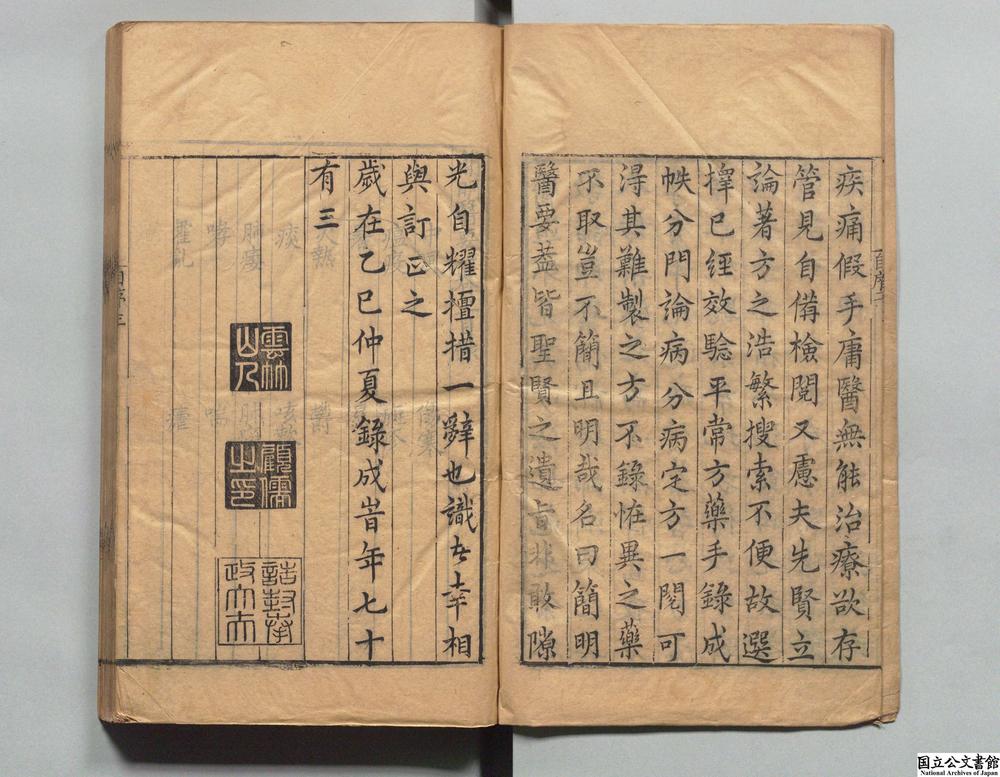 疾痛假手庸醫無能治療欲存
管見自備檢閱又慮夫先賢立
論著方之浩繁搜索不便故選
擇已經效驗平常方藥手錄成
帙分門論病分病定方一閱可
得其難製之方不錄恠異之藥
不取豈不簡且明哉名曰簡明
醫要葢皆聖賢之遺旨非敢隙
自序二
光自耀擅措一辭也識者幸相
與訂正之
歲在乙巳仲夏錄成旹年七十
有三
雲林山人
顧儒之印
誥封奉政大夫
自序三
国立公文書館
National Archives of Japan